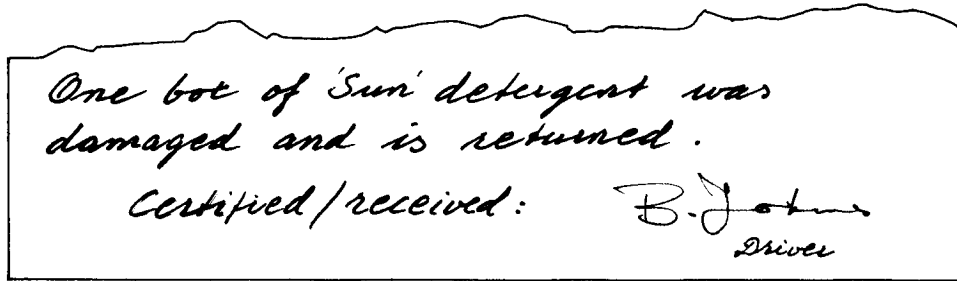 One box of 'Sun' detergent was
damaged and is returned.
Certified/received: B. Johns
Driver